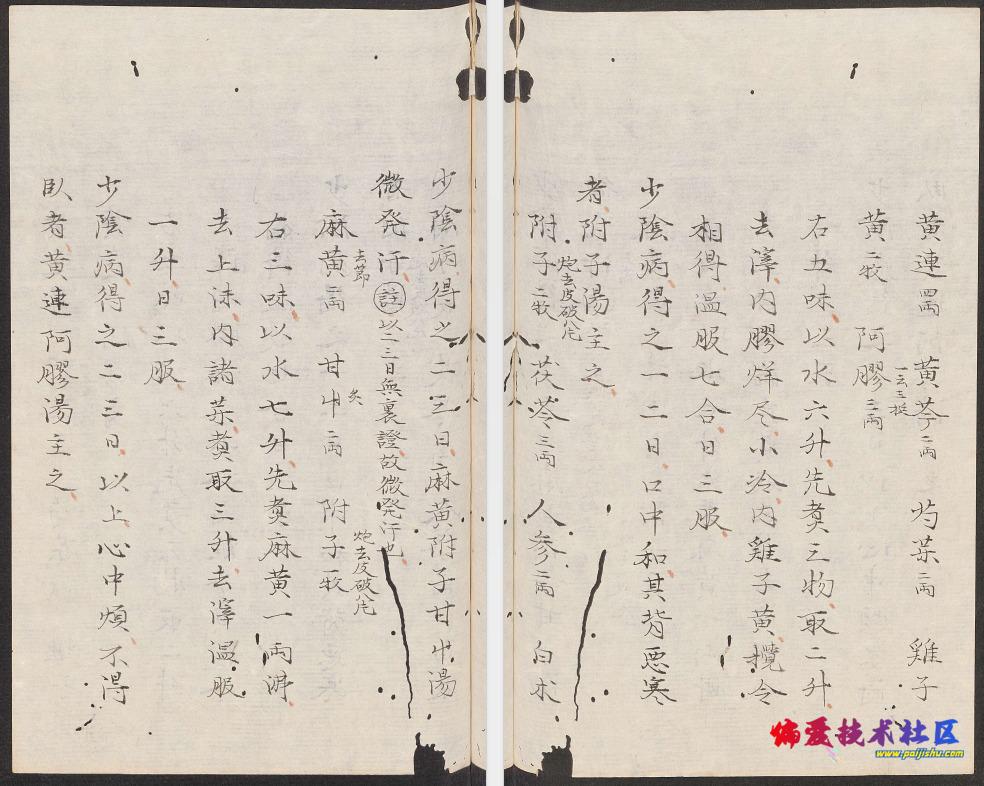 黄連四両 黄芩二両 芍薬二両 雞子
黄二枚 阿膠三両一云三挺
右五味以水六升先煑三物取二升
去滓内膠烊尽小冷内雞子黄攪令
相得温服七合日三服
少陰病得之一二日口中和其背悪寒
者附子湯主之
附子二枚炮去皮破八片 茯苓三両 人参二両 白朮
少陰病得之二三日麻黄附子甘艸湯
微発汗註以二三日無裏證故微発汗也
麻黄二両去節 甘艸二両炙 附子一枚炮去皮破八片
右三味以水七升先煑麻黄一両沸
去上沫内諸薬煑取三升去滓温服
一升日三服
少陰病得之二三日以上心中煩不得
臥者黄連阿膠湯主之
偏爱技术社区
www.paijishu.com